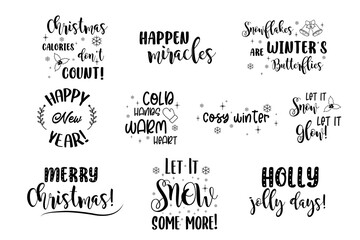 Christmas
CALORIES don't
COUNT!
HAPPEN
miracles
Snowflakes
ARE WINTER'S
Butterflies
HAPPY
New
YEAR!
COLD
HANDS
WARM
HEART
cosy winter
LET IT
Snow
LET IT
Glow!
MERRY
Christmas!
LET IT
SNOW
SOME MORE!
HOLLY
jolly days!